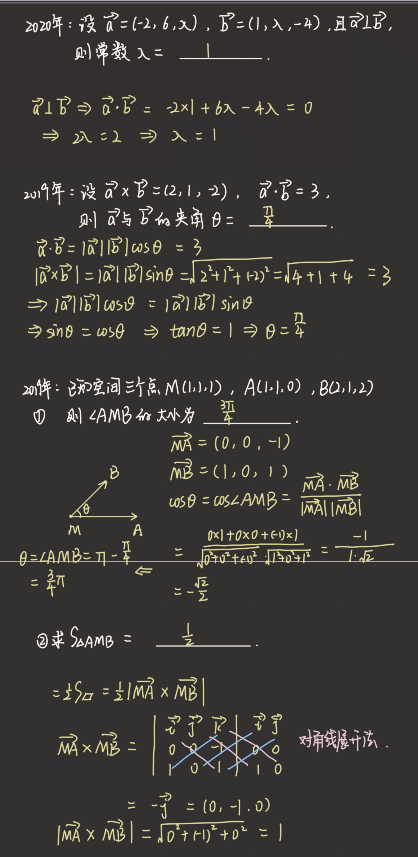 2020年：设 a⃗=(-2,6,λ)，b⃗=(1,λ,-4)，且a⃗⊥b⃗，
则常数 λ = 1 .
a⃗⊥b⃗ ⇒ a⃗·b⃗ = -2×1+6λ-4λ = 0
⇒ 2λ=2 ⇒ λ=1
2019年：设 a⃗×b⃗=(2,1,-2)，a⃗·b⃗=3，
则 a⃗与b⃗的夹角 θ = π/4 .
a⃗·b⃗ = |a⃗||b⃗|cosθ = 3
|a⃗×b⃗| = |a⃗||b⃗|sinθ = √(2²+1²+(-2)²) = √(4+1+4) = 3
⇒ |a⃗||b⃗|cosθ = |a⃗||b⃗|sinθ
⇒ sinθ = cosθ ⇒ tanθ = 1 ⇒ θ = π/4
2019年：已知空间三个点 M(1,1,1)，A(1,1,0)，B(2,1,2)
① 则 ∠AMB 的大小为 3π/4 .
MA⃗ = (0,0,-1)
MB⃗ = (1,0,1)
cosθ = cos∠AMB = MA⃗·MB⃗ / |MA⃗||MB⃗|
B
θ
M A
= 0×1+0×0+(-1)×1 / √(0²+0²+(-1)²)·√(1²+0²+1²) = -1 / 1·√2
= -√2/2
θ=∠AMB = π - π/4 ⇐
= 3/4 π
②求 S△AMB = 1/2 .
= ½S▱ = ½|MA⃗ × MB⃗|
MA⃗ × MB⃗ = | i⃗ j⃗ k⃗ | i⃗ j⃗
0 0 -1 0 0
1 0 1 1 0
对角线展开法.
= -j⃗ = (0,-1,0)
|MA⃗ × MB⃗| = √(0²+(-1)²+0²) = 1